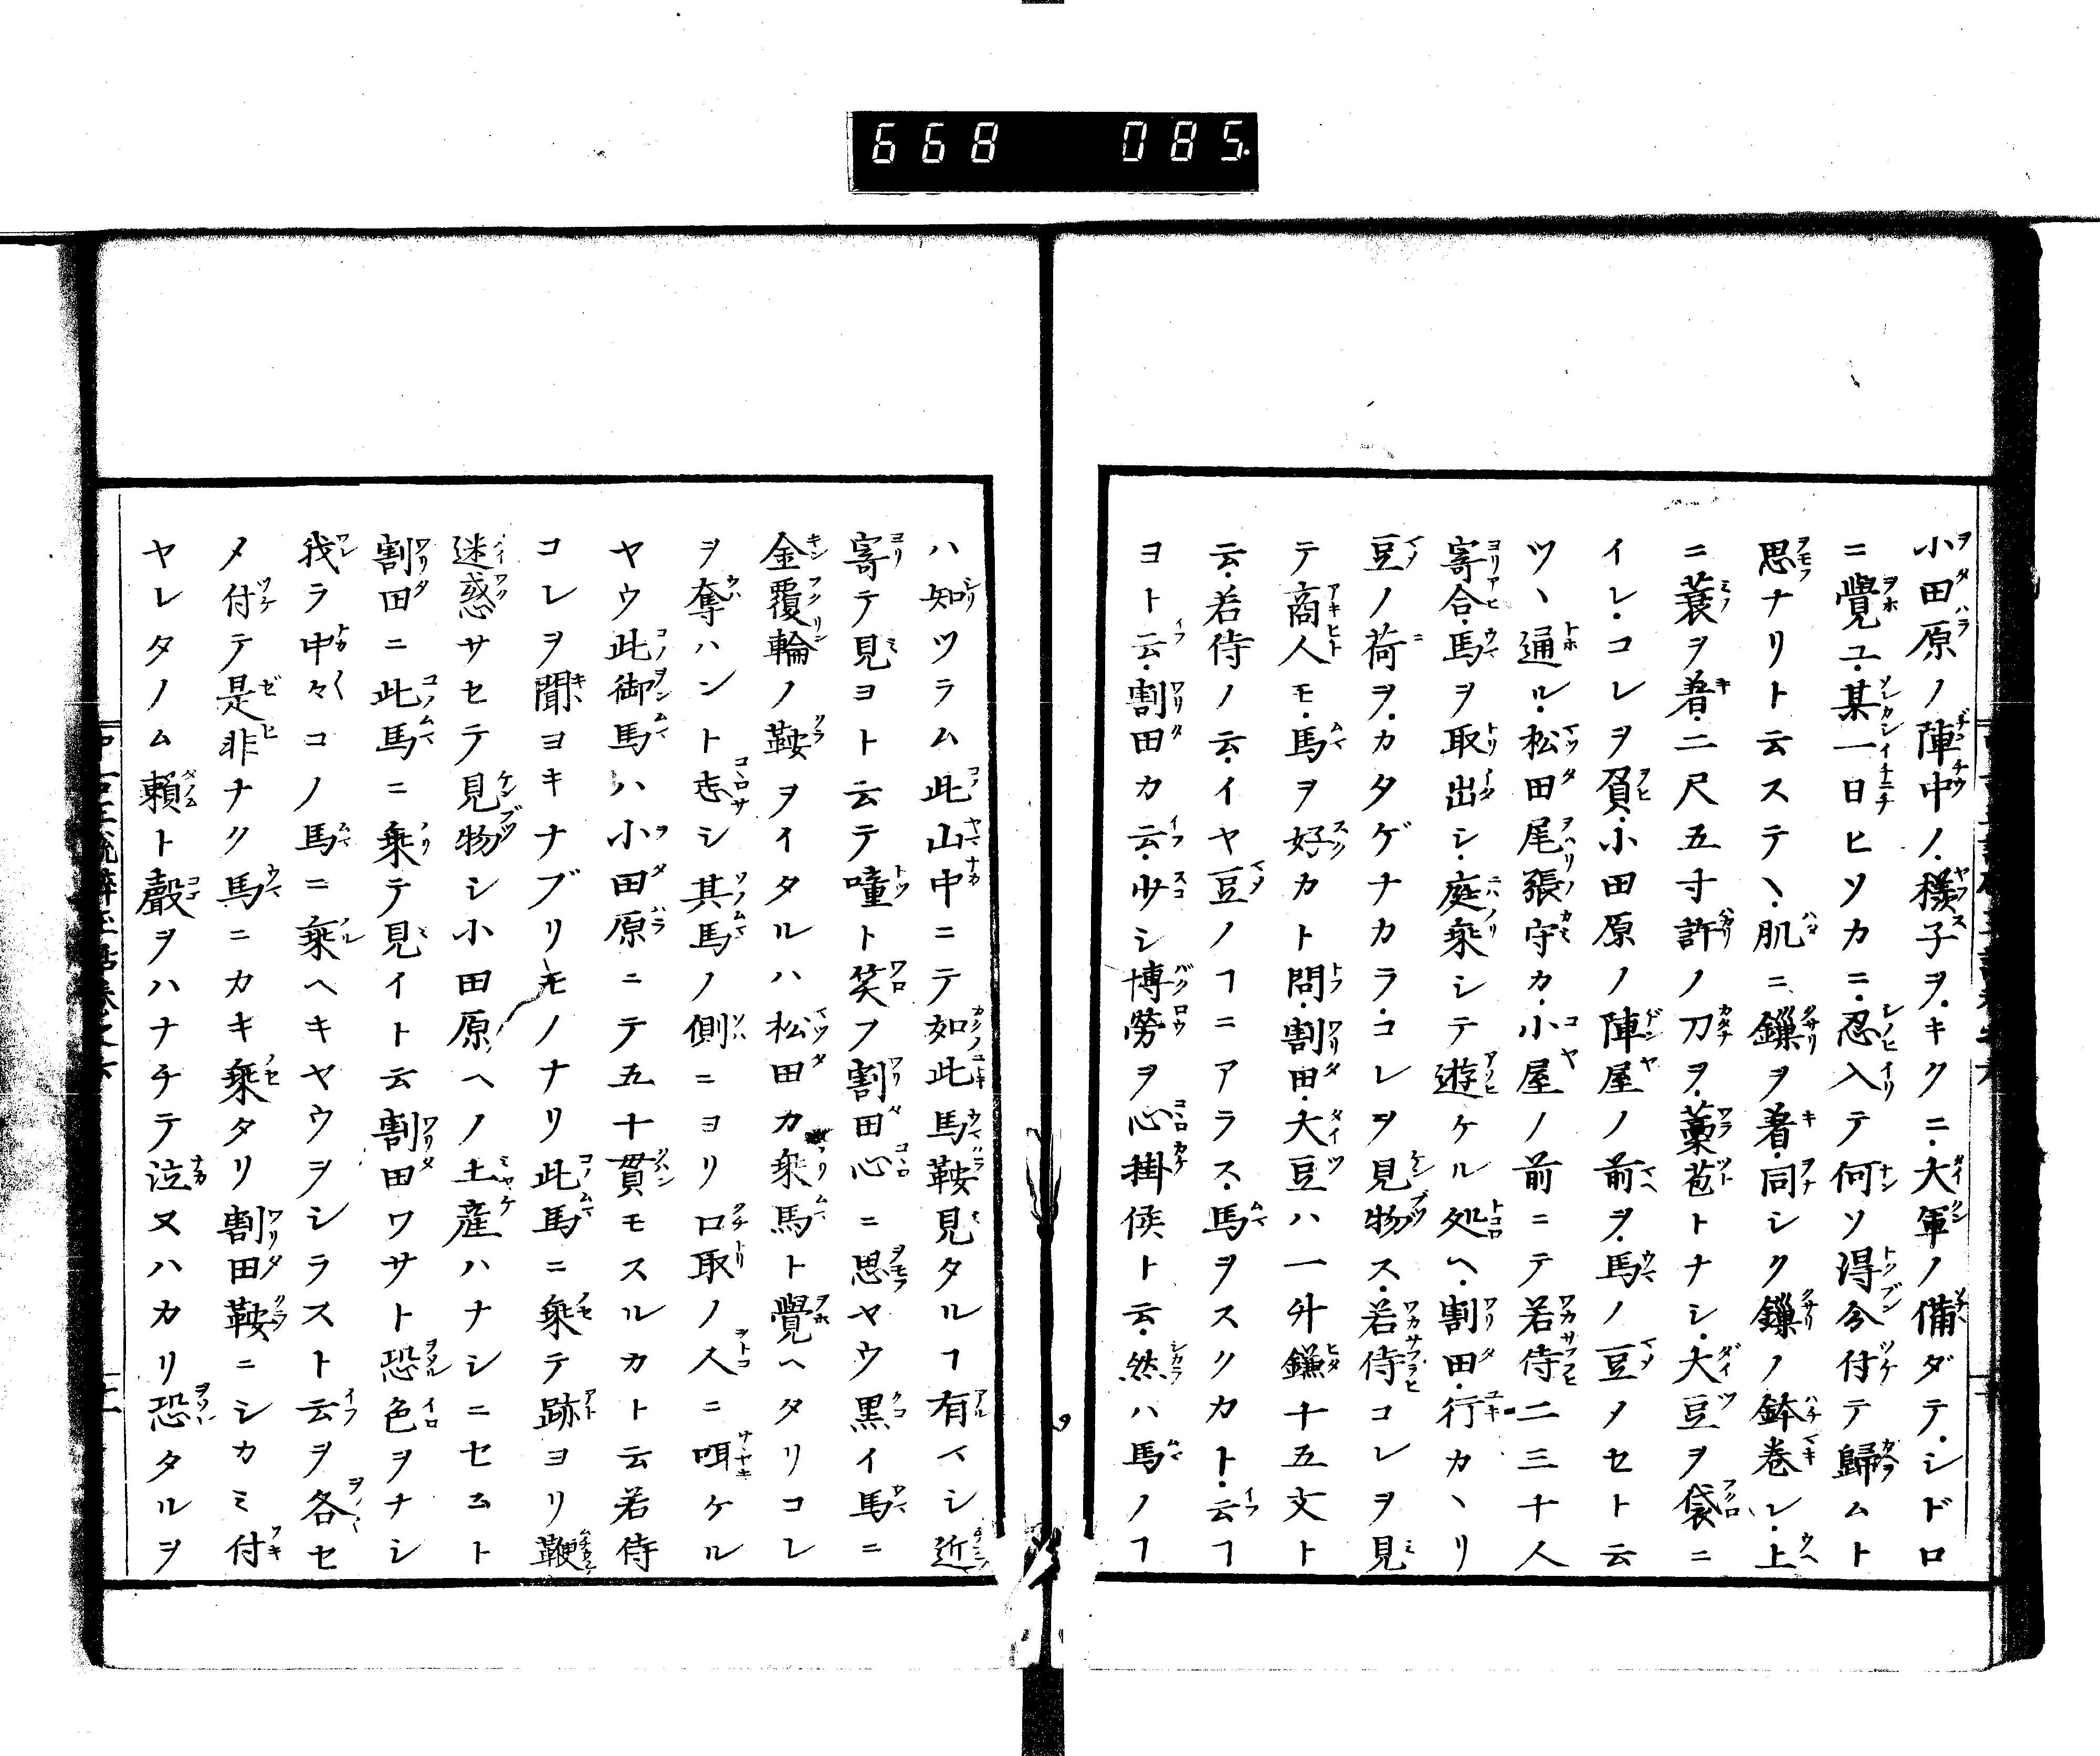 668 085.
小田原ノ陣中ノ樣子ヲキクニ大軍ノ備ダテシドロ
ニ覺ユ某一日ヒソカニ忍入テ何ソ得分付テ歸ムト
思ナリト云ステヽ肌ニ鏁ヲ着同シク鏁ノ鉢巻レ上
ニ蓑ヲ着二尺五寸許ノ刀ヲ藁苞トナシ大豆ヲ袋ニ
イレコレヲ負小田原ノ陣屋ノ前ヲ馬ノ豆メセト云
ツヽ通ル松田尾張守カ小屋ノ前ニテ若侍二三十人
寄合馬ヲ取出シ庭乗シテ遊ケル処ヘ割田行カヽリ
豆ノ荷ヲカタゲナカラコレヲ見物ス若侍コレヲ見
テ商人モ馬ヲ好カト問割田大豆ハ一升鐚十五文ト
云若侍ノ云イヤ豆ノヿニアラス馬ヲスクカト云ヿ
ヨト云割田カ云少シ博労ヲ心掛候ト云然ハ馬ノヿ
ハ知ツラム此山中ニテ如此馬鞍見タルヿ有ヘシ近
寄テ見ヨト云テ噇ト笑フ割田心ニ思ヤウ黒イ馬ニ
金覆輪ノ鞍ヲイタルハ松田カ乗馬ト覺ヘタリコレ
ヲ奪ハント志シ其馬ノ側ニヨリ口取ノ人ニ咡ケル
ヤウ此御馬ハ小田原ニテ五十貫モスルカト云若侍
コレヲ聞ヨキナブリモノナリ此馬ニ乗テ跡ヨリ鞭
迷惑サセテ見物シ小田原ヘノ土産ハナシニセムト
割田ニ此馬ニ乗テ見イト云割田ワサト恐色ヲナシ
我ラ中々コノ馬ニ乗ヘキヤウヲシラスト云ヲ各セ
メ付テ是非ナク馬ニカキ乗タリ割田鞍ニシカミ付
ヤレタノム頼ト聲ヲハナチテ泣又ハカリ恐タルヲ